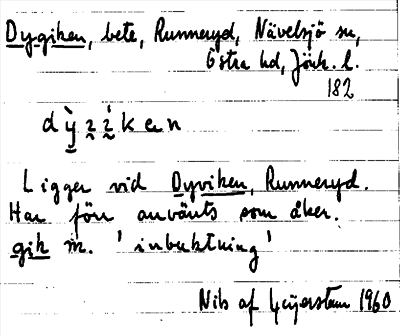 Dygiken, bete, Runneryd, Nävelsjö sn,
Östra hd, Jönk. l.
182
Ligger vid Dyviken, Runneryd.
Har förr använts som åker.
gik m. 'inbuktning'
Nils af Geijerstam 1960